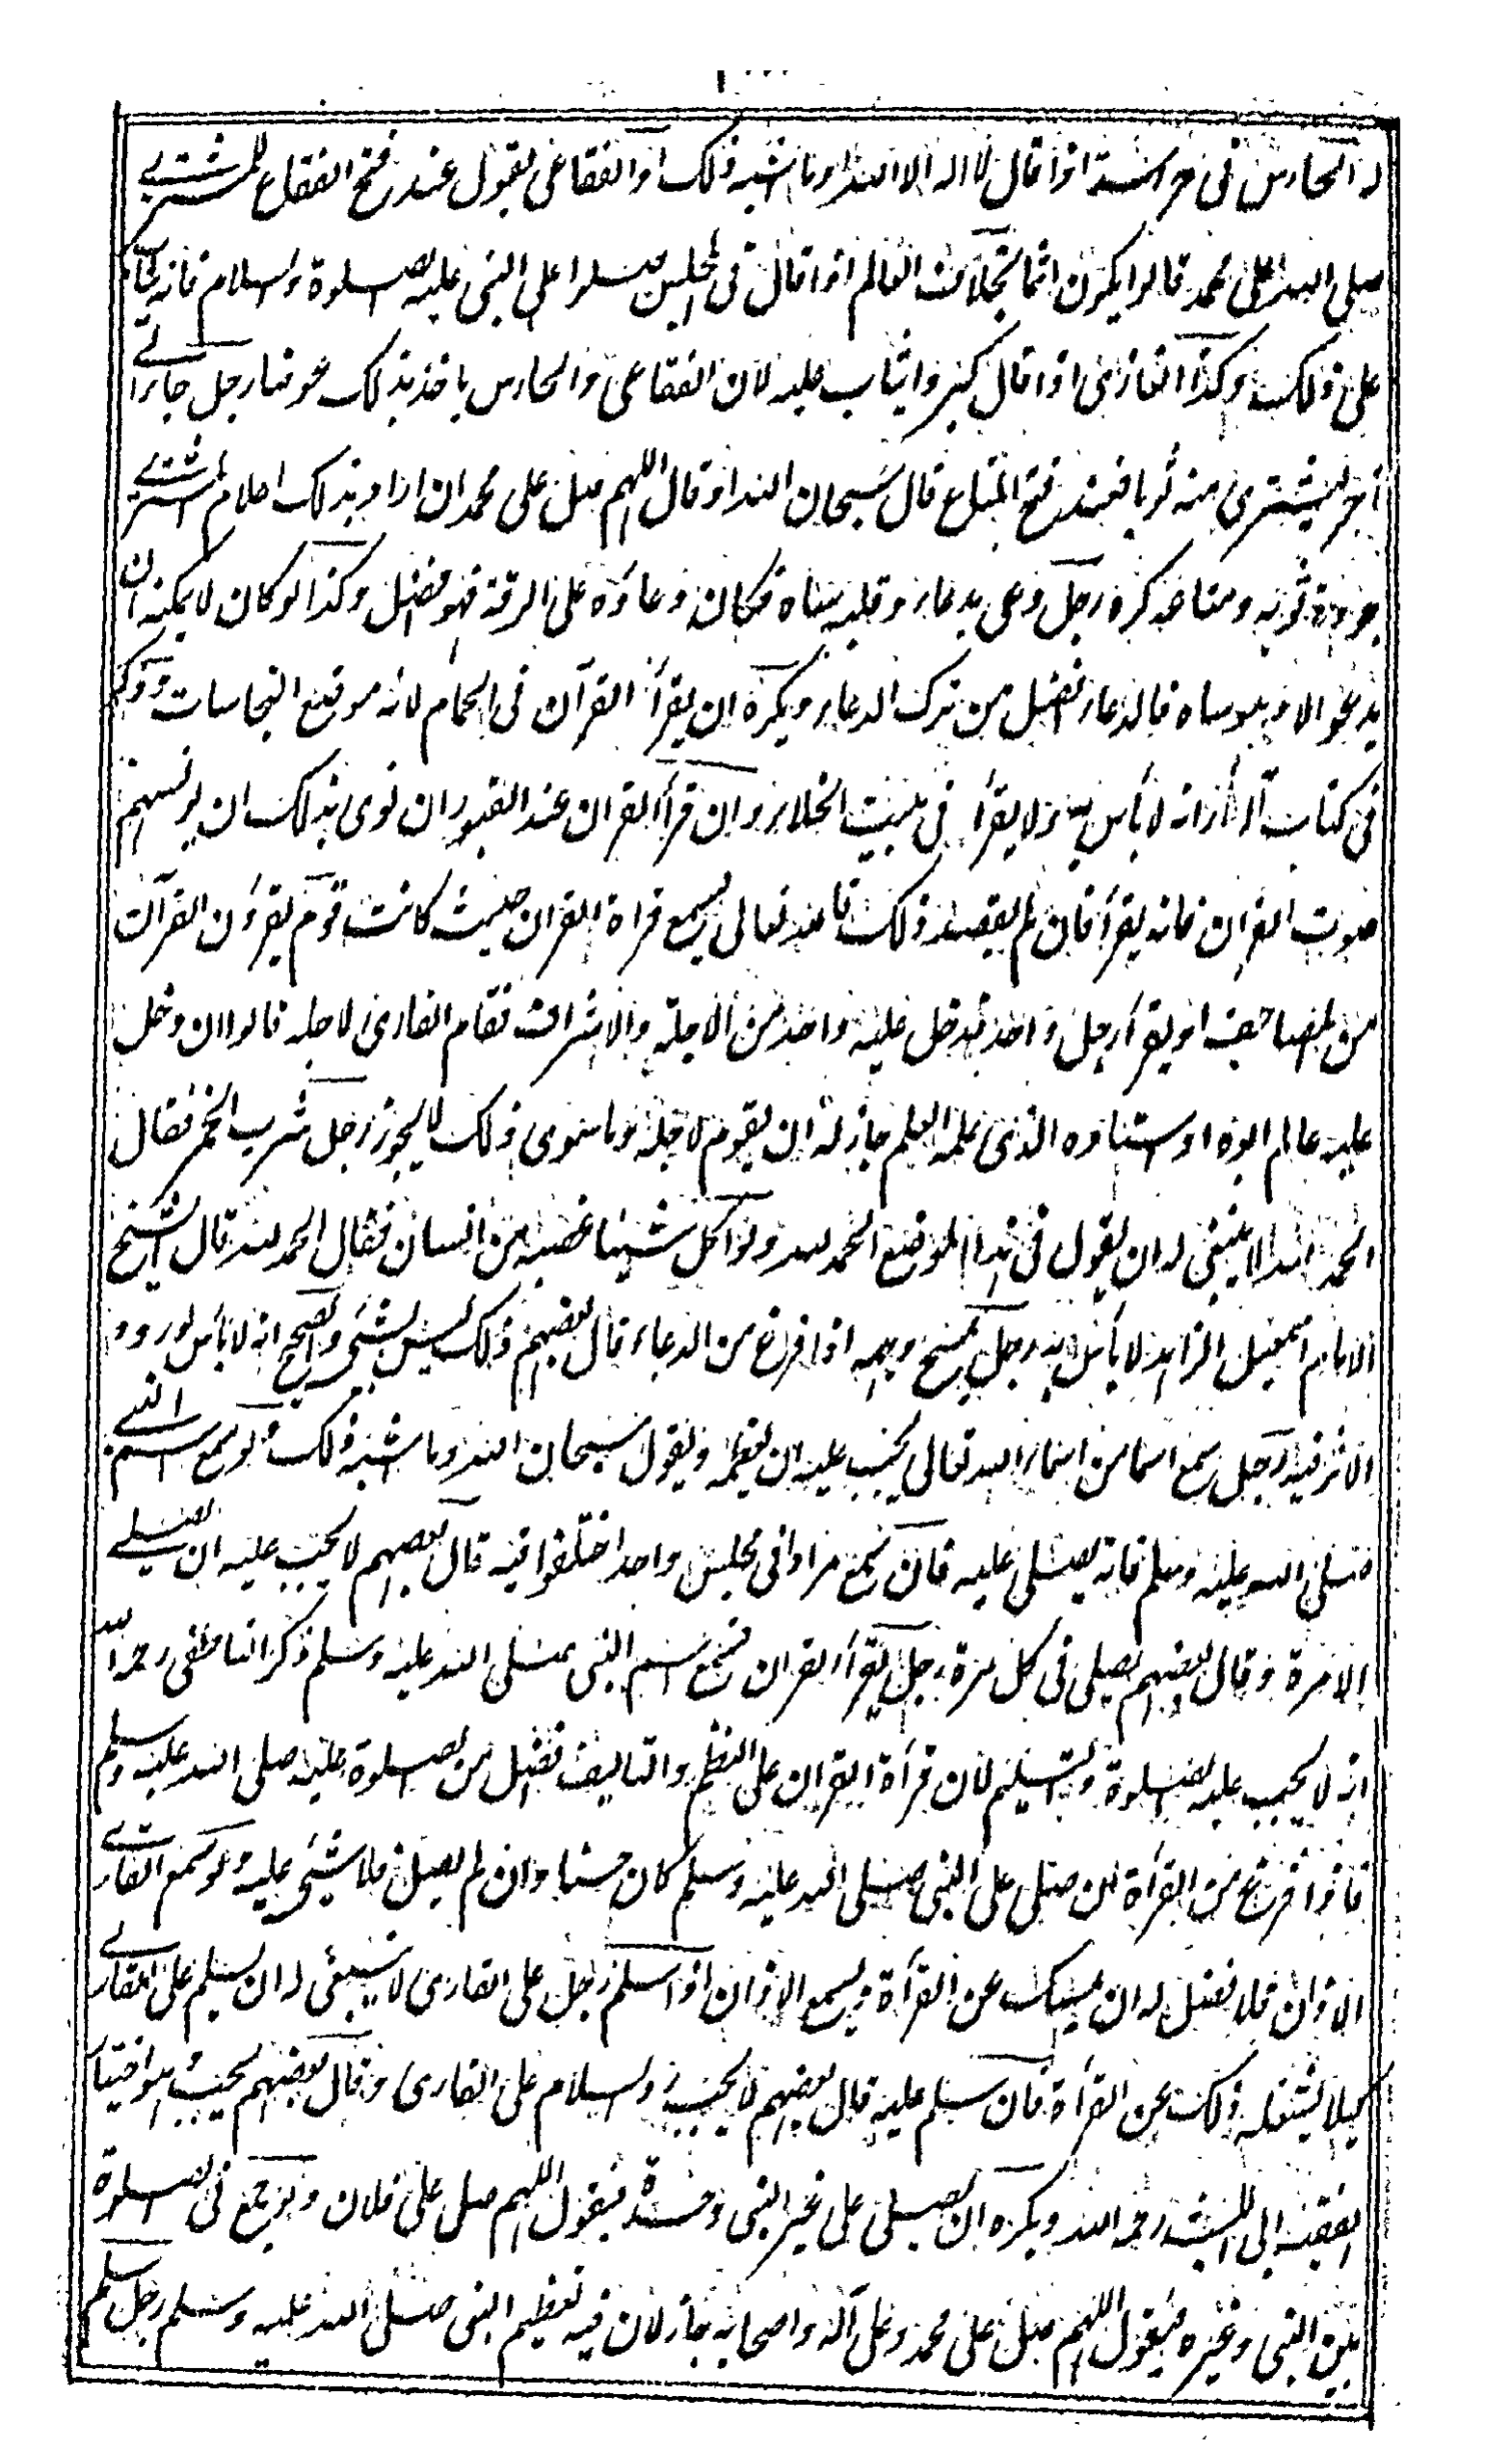 د الحارس في حراسته اذا قال لا اله الا الله او ما اشبه ذلك او الفقاعي يقول عند فتح الفقاع للمشتري
صلى الله على محمد قالوا يكون اثما بخلاف العالم اذا قال في المجلس صلوا على النبي عليه الصلوة والسلام فانه يثاب
على ذلك وكذا الغازي اذا قال كبروا يثاب عليه لان الفقاعي والحارس ياخذ بذلك عوضا رجل جاء الى
تاجر ليشتري منه ثوبا فعند فتح المتاع قال سبحان الله او قال اللهم صل على محمد ان اراد بذلك اعلام المشتري
جودة ثوبه ومتاعه كره رجل دعى بدعاء وقلبه ساه فكان دعاؤه على الرقة فهو افضل وكذا لو كان لا يمكنه ان
يدعو الا وهو ساه فالدعاء افضل من ترك الدعاء ويكره ان يقرأ القرآن في الحمام لانه موضع النجاسات وذكر
في كتاب انه لا بأس به ولا يقرأ في بيت الخلاء وان قرأ القران عند القبور ان نوى بذلك ان يونسهم
صوت القران فانه يقرأ فان لم يقصد ذلك فالله تعالى يسمع قراة القران حيث كانت قوم يقرؤن القرآن
من المصاحف او يقرأ رجل واحد فدخل عليه واحد من الاجلة والاشراف فقام القارئ لاجله قالوا ان دخل
عليه عالم او ابوه او استاده الذي علمه العلم جاز له ان يقوم لاجله وما سوى ذلك لا يجوز رجل شرب الخمر فقال
الحمد لله لا ينبغي له ان يقول في هذا الموضع الحمد لله ولو اكل شيئا غصبه من انسان فقال الحمد لله قال الشيخ
الامام اسمعيل الزاهد لا بأس به رجل يمسح وجهه اذا فرغ من الدعاء قال بعضهم ذلك ليس بشئ والصحيح انه لا بأس لورود
الاثر فيه رجل سمع اسما من اسماء الله تعالى يجب عليه ان يعظمه ويقول سبحان الله وما اشبه ذلك ولو سمع اسم النبي
صلى الله عليه وسلم فانه يصلى عليه فان سمع مرارا في مجلس واحد اختلفوا فيه قال بعضهم لا يجب عليه ان يصلي
الا مرة وقال بعضهم يصلى في كل مرة رجل يقرأ القران فسمع اسم النبي صلى الله عليه وسلم ذكر الناطفي رحمه الله
انه لا يجب عليه الصلوة والتسليم لان قرأة القران على النظم والتاليف افضل من الصلوة عليه صلى الله عليه وسلم
فاذا فرغ من القرأة ان صلى على النبي صلى الله عليه وسلم كان حسنا وان لم يصل فلا شئ عليه ولو سمع القاري
الاذان فالافضل له ان يمسك عن القرأة ويسمع الاذان اذا سلم رجل على القارى لا ينبغى له ان يسلم على القاري
كيلا يشغله ذلك عن القرأة فان سلم عليه قال بعضهم لا يجب رد السلام على القارى وقال بعضهم يجب وهو اختيار
الفقيه ابي الليث رحمه الله ويكره ان يصلى على غير النبي وحده فيقول اللهم صل على فلان ولو جمع في الصلوة
بين النبي وغيره فيقول اللهم صل على محمد وعلى آله واصحابه جاز لان فيه تعظيم النبي صلى الله عليه وسلم رجل سلم